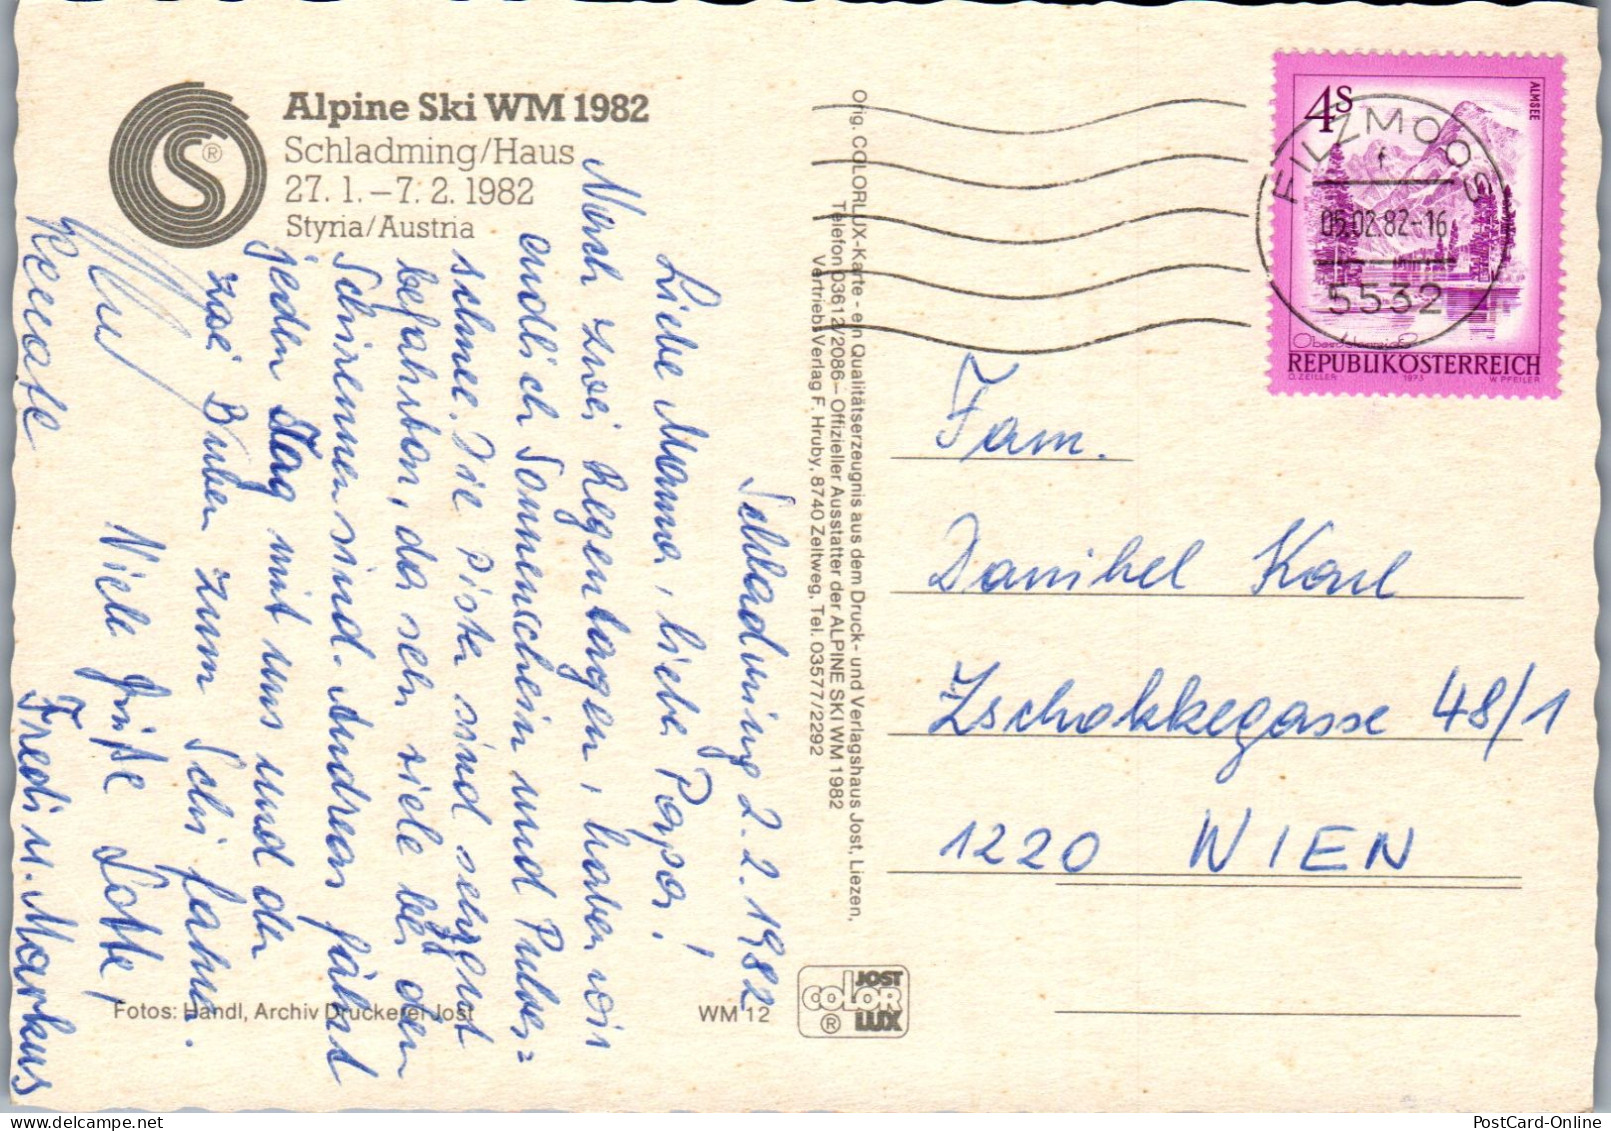 Alpine Ski WM 1982
Schladming/Haus
27. 1. – 7. 2. 1982
Styria/Austria
S ®
Schladming 2.2.1982
Liebe Mama, liebe Papa!
Nach zwei Regentagen, haben wir
endlich Sonnenschein und Pulver=
schnee. Die Piste sind
befahrbar, da sehr viele bei den
Schirennen sind. Andreas fährt
jeden Tag mit uns und den
zwei Buben zum Schi fahren.
Viele Grüße Lotte,
Fredi u. Markus
Renate
Fotos: Handl, Archiv Druckerei Jost
WM 12
Orig. COLORLUX-Karte - ein Qualitätserzeugnis aus dem Druck- und Verlagshaus Jost, Liezen,
Telefon 03612/2086 – Offizieller Ausstatter der ALPINE SKI WM 1982
Vertrieb: Verlag F. Hruby, 8740 Zeltweg, Tel. 03577/2292
JOST
COLOR
® LUX
4S
ALMSEE
Oberösterreich
REPUBLIK ÖSTERREICH
O. ZEILLER 1973 W. PFEILER
FILZMOOS
05.02.82-16
5532
Fam.
Danihel Karl
Zschokkegasse 48/1
1220 WIEN
PostCard-Online